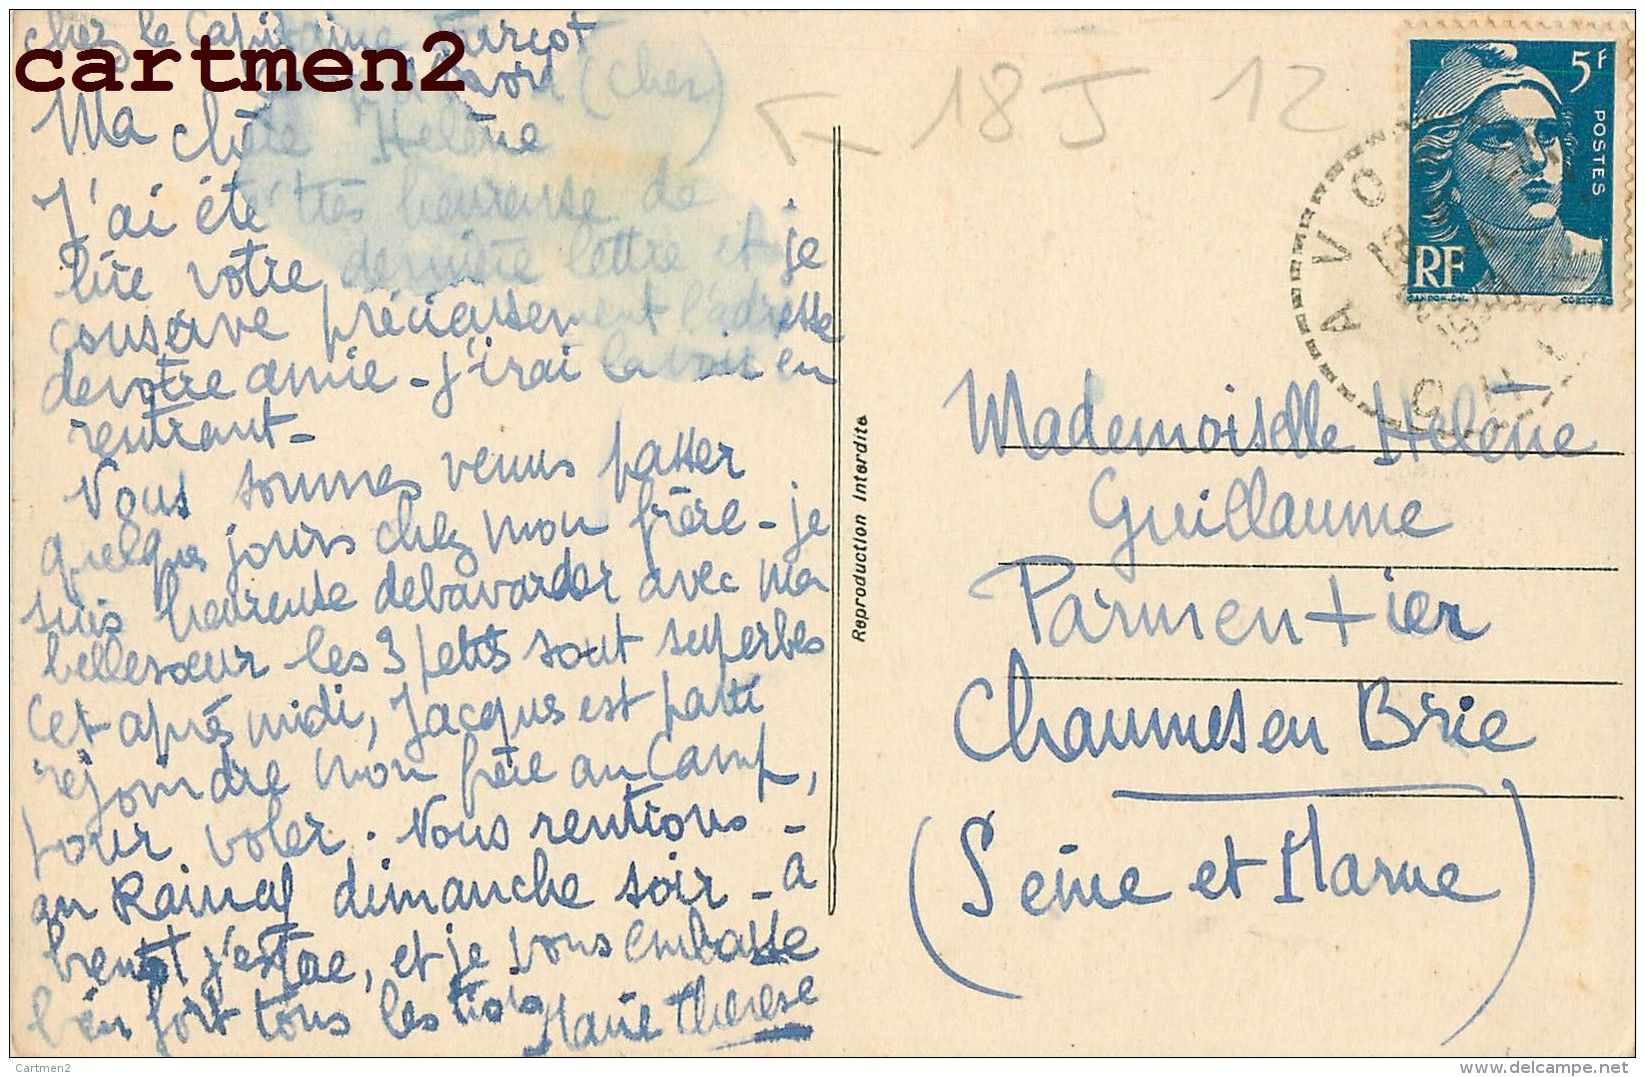 chez le Capitaine Turcot
cartmen2
Avord (Cher)
18 J 12
Ma chère Helène
J'ai été très heureuse de
lire votre dernière lettre et je
conserve précieusement l'adresse
de votre amie - j'irai la voir en
rentrant -
Nous sommes venus passer
quelques jours chez mon frère - je
suis heureuse de bavarder avec ma
belle soeur - les 3 petits sont superbes
Cet après midi, Jacques est parti
rejoindre mon frère au Camp,
pour voler. Nous rentions -
au Raincy dimanche soir - à
bientôt j'espère, et je vous embrasse
bien fort tous les trois
Marie Thérèse
Reproduction Interdite
5F
POSTES
RF
GANDON.DEL.
CORTOT.SC
AVORD
CHER
Mademoiselle Helène
Guillaume
Parmentier
Chaumes en Brie
(Seine et Marne)
Cartmen2
http://www.delcampe.net